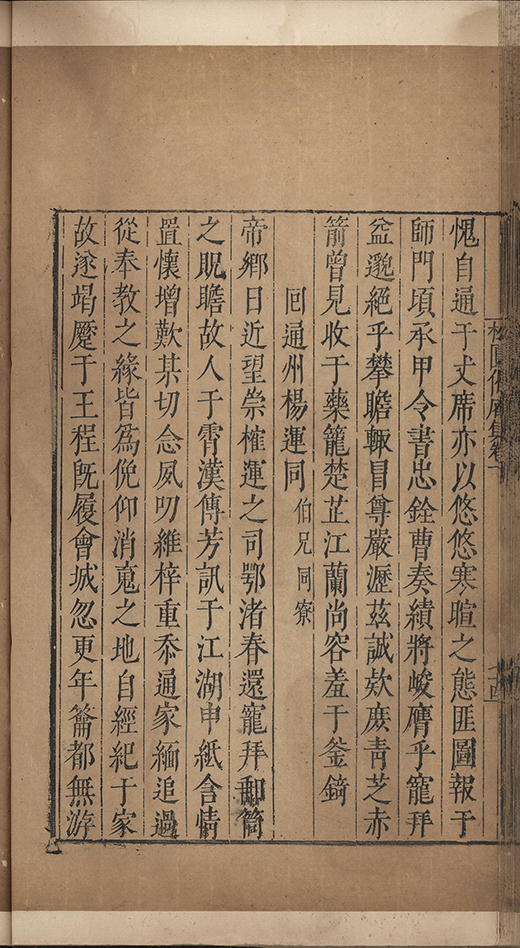 愧自通于丈席亦以悠悠寒暄之態匪圖報于
師門頃承甲令書忠銓曹奏績將峻膺乎寵拜
益邈絕乎攀瞻輙冒尊嚴瀝茲誠欵庻靑芝赤
箭曾見收于藥籠楚芷江蘭尚容羞于釜錡
囘通州楊運同伯兄同寮
帝鄉日近望崇榷運之司鄂渚春還寵拜郵筒
之貺瞻故人于霄漢傳芳訊于江湖申紙含情
置懷增歎某切念夙叨維梓重忝通家緬追過
從奉教之緣皆爲俛仰消䰟之地自經紀于家
故遂竭蹷于王程旣履會城忽更年籥都無游
松圓偈庵集卷